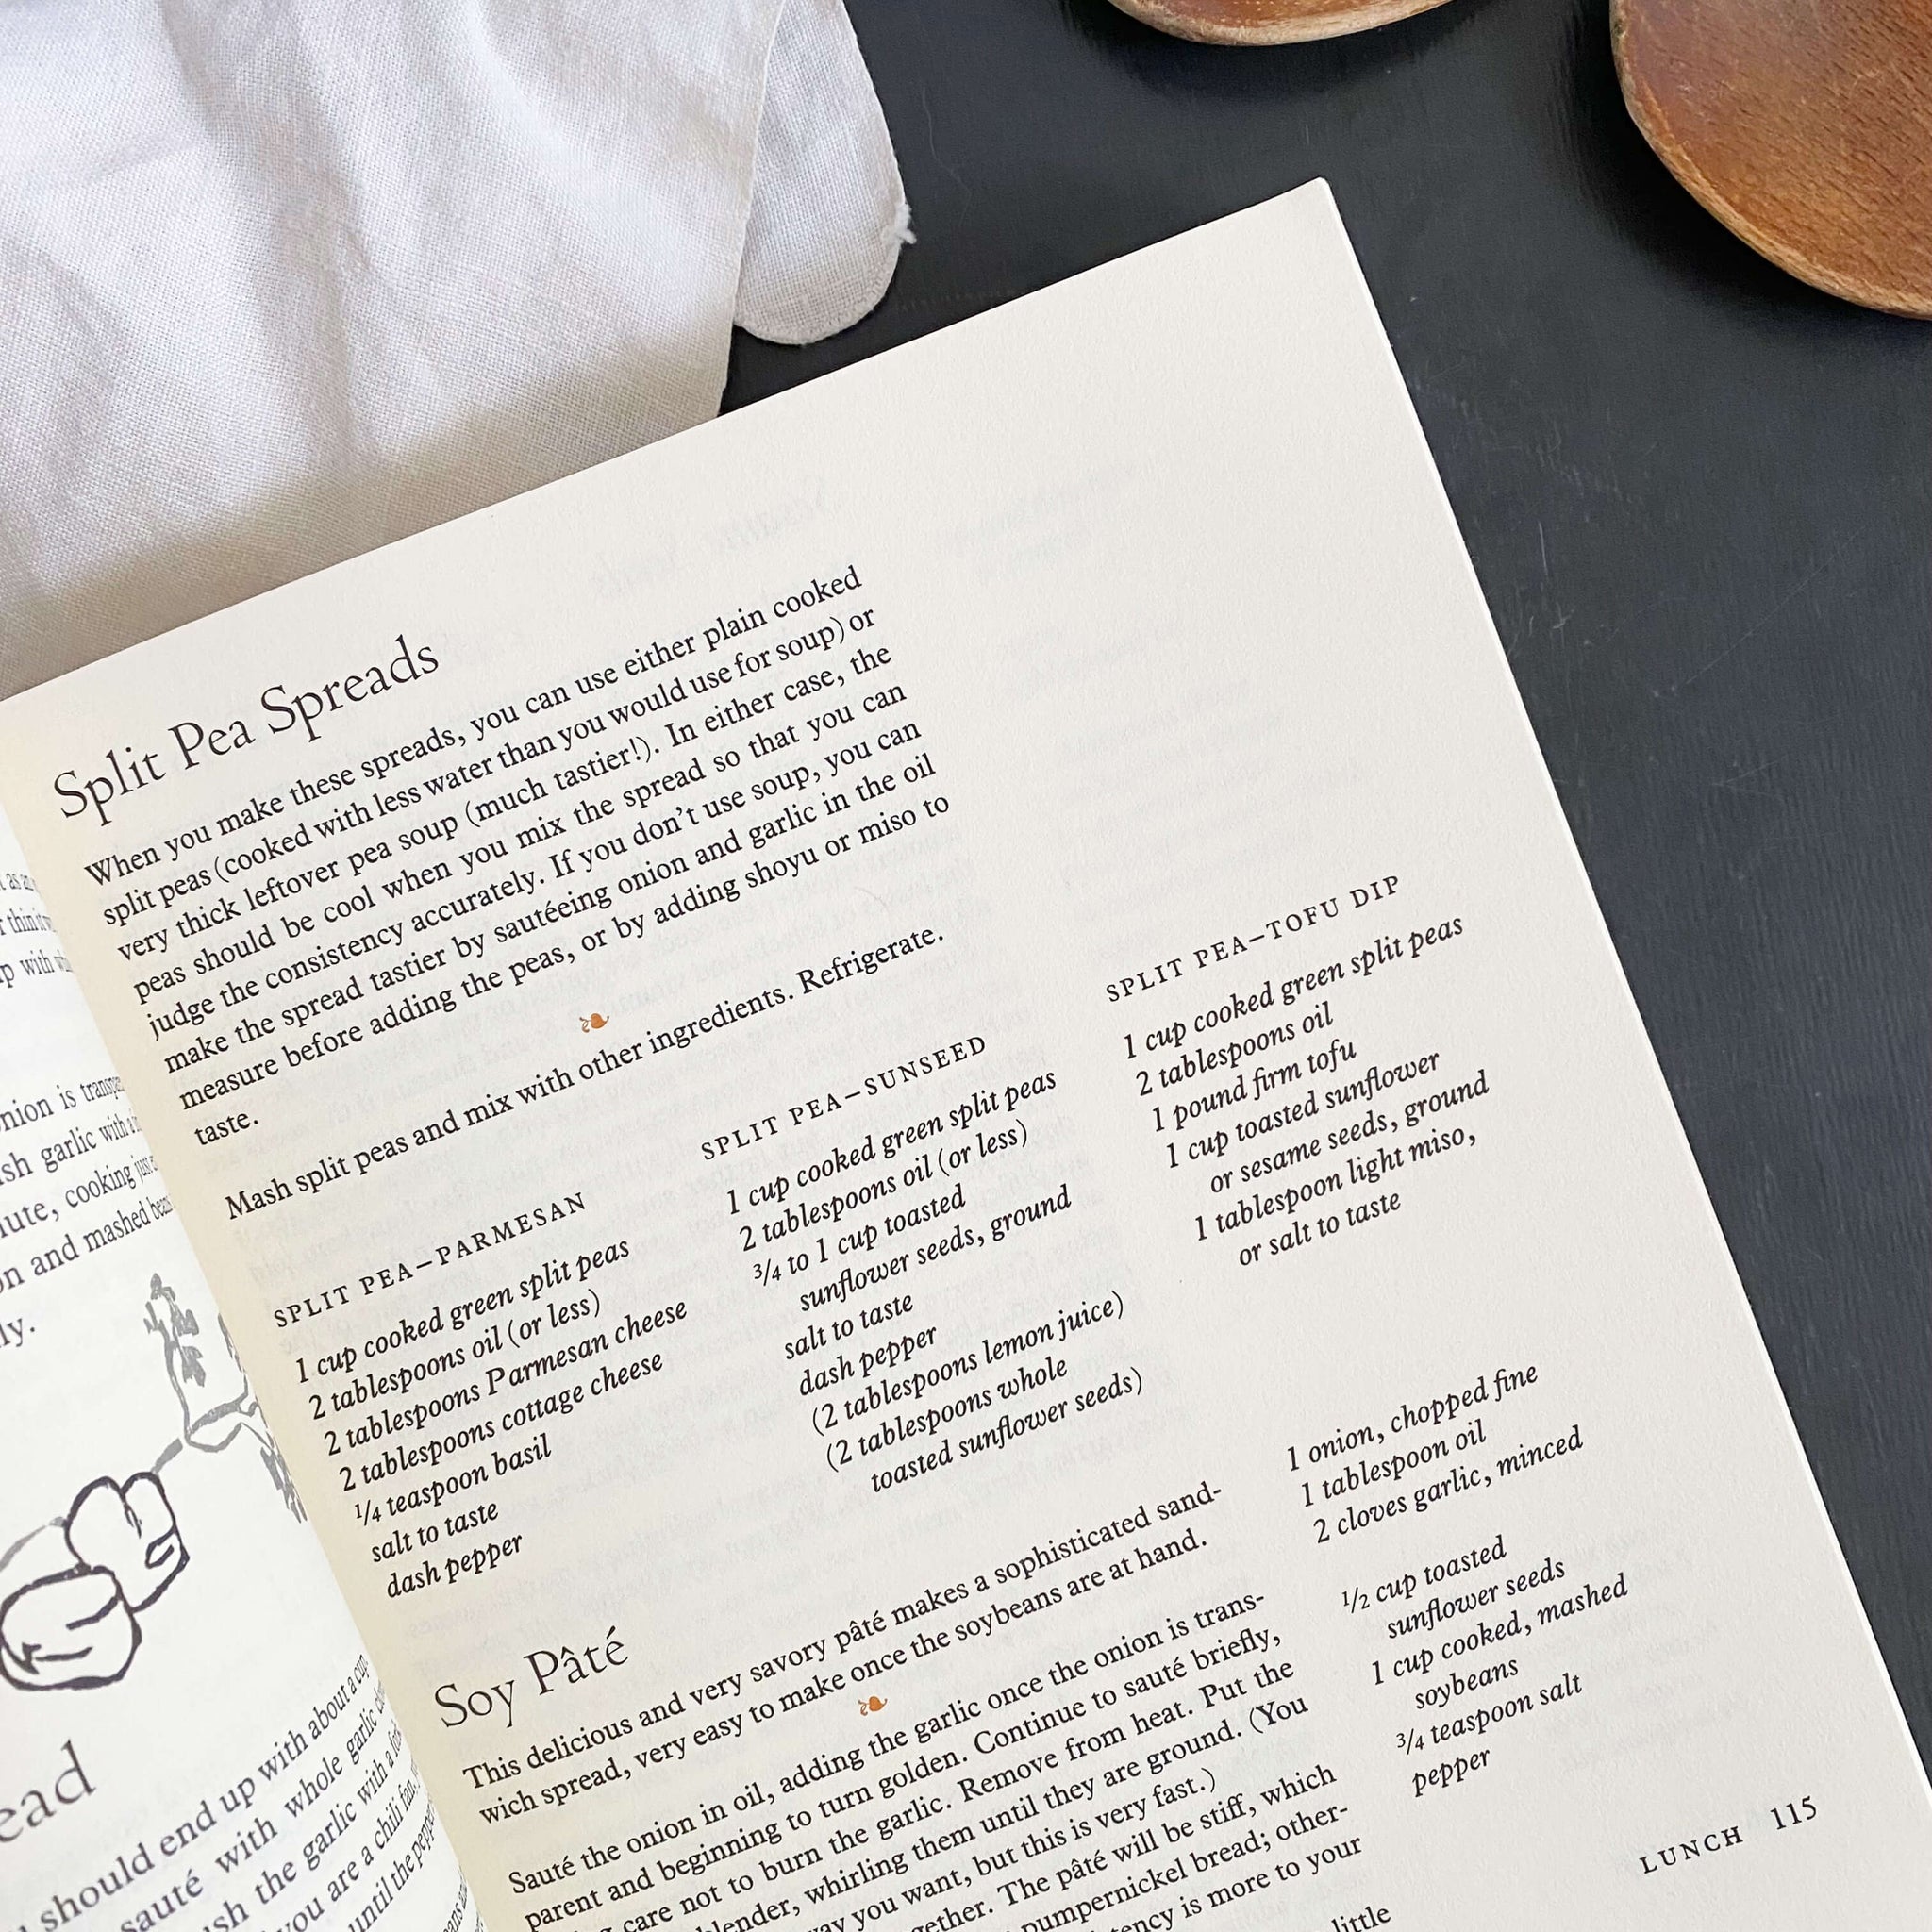 Split Pea Spreads
When you make these spreads, you can use either plain cooked
split peas (cooked with less water than you would use for soup) or
very thick leftover pea soup (much tastier!). In either case, the
peas should be cool when you mix the spread so that you can
judge the consistency accurately. If you don't use soup, you can
make the spread tastier by sautéeing onion and garlic in the oil
measure before adding the peas, or by adding shoyu or miso to
taste.
Mash split peas and mix with other ingredients. Refrigerate.
SPLIT PEA–PARMESAN
1 cup cooked green split peas
2 tablespoons oil (or less)
2 tablespoons Parmesan cheese
2 tablespoons cottage cheese
¼ teaspoon basil
salt to taste
dash pepper
SPLIT PEA–SUNSEED
1 cup cooked green split peas
2 tablespoons oil (or less)
¾ to 1 cup toasted
sunflower seeds, ground
salt to taste
dash pepper
(2 tablespoons lemon juice)
(2 tablespoons whole
toasted sunflower seeds)
SPLIT PEA–TOFU DIP
1 cup cooked green split peas
2 tablespoons oil
1 pound firm tofu
1 cup toasted sunflower
or sesame seeds, ground
1 tablespoon light miso,
or salt to taste
Soy Pâté
This delicious and very savory pâté makes a sophisticated sand-
wich spread, very easy to make once the soybeans are at hand.
Sauté the onion in oil, adding the garlic once the onion is trans-
parent and beginning to turn golden. Continue to sauté briefly,
care not to burn the garlic. Remove from heat. Put the
whirling them until they are ground. (You
you want, but this is very fast.)
The pâté will be stiff, which
pumpernickel bread; other-
is more to your
little
1 onion, chopped fine
1 tablespoon oil
2 cloves garlic, minced
½ cup toasted
sunflower seeds
1 cup cooked, mashed
soybeans
¾ teaspoon salt
pepper
LUNCH 115
onion is
garlic with
cooking
and mashed
ly.
should end up with about a cup
sauté with whole garlic
the garlic with a
you are a chili fan,
until the